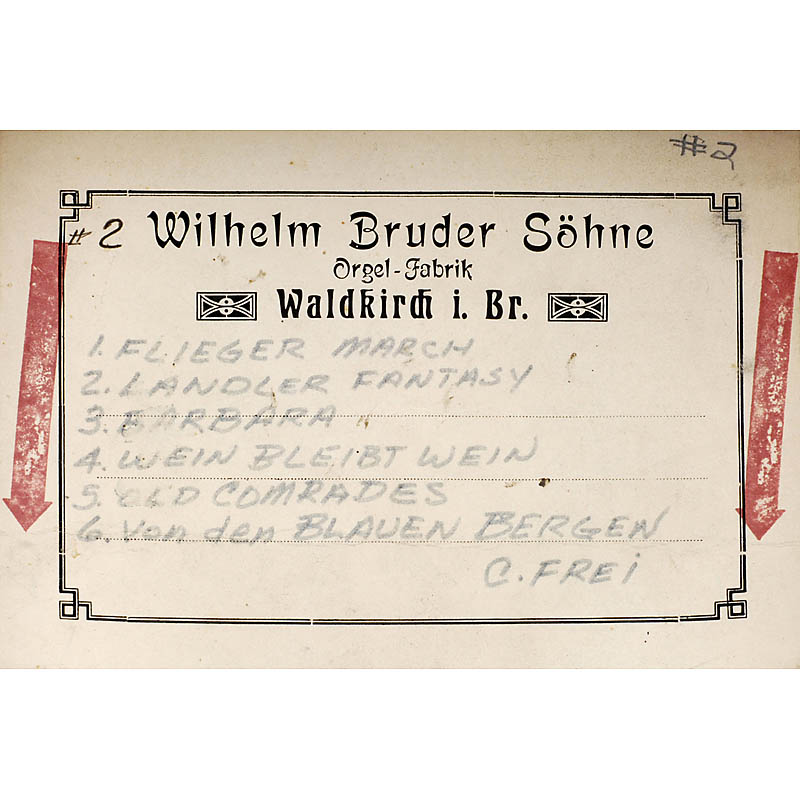 #2
#2 Wilhelm Bruder Söhne
Orgel-Fabrik
Waldkirch i. Br.
1. FLIEGER MARCH
2. LANDLER FANTASY
3. BARBARA
4. WEIN BLEIBT WEIN
5. OLD COMRADES
6. Von den BLAUEN BERGEN
C. FREI